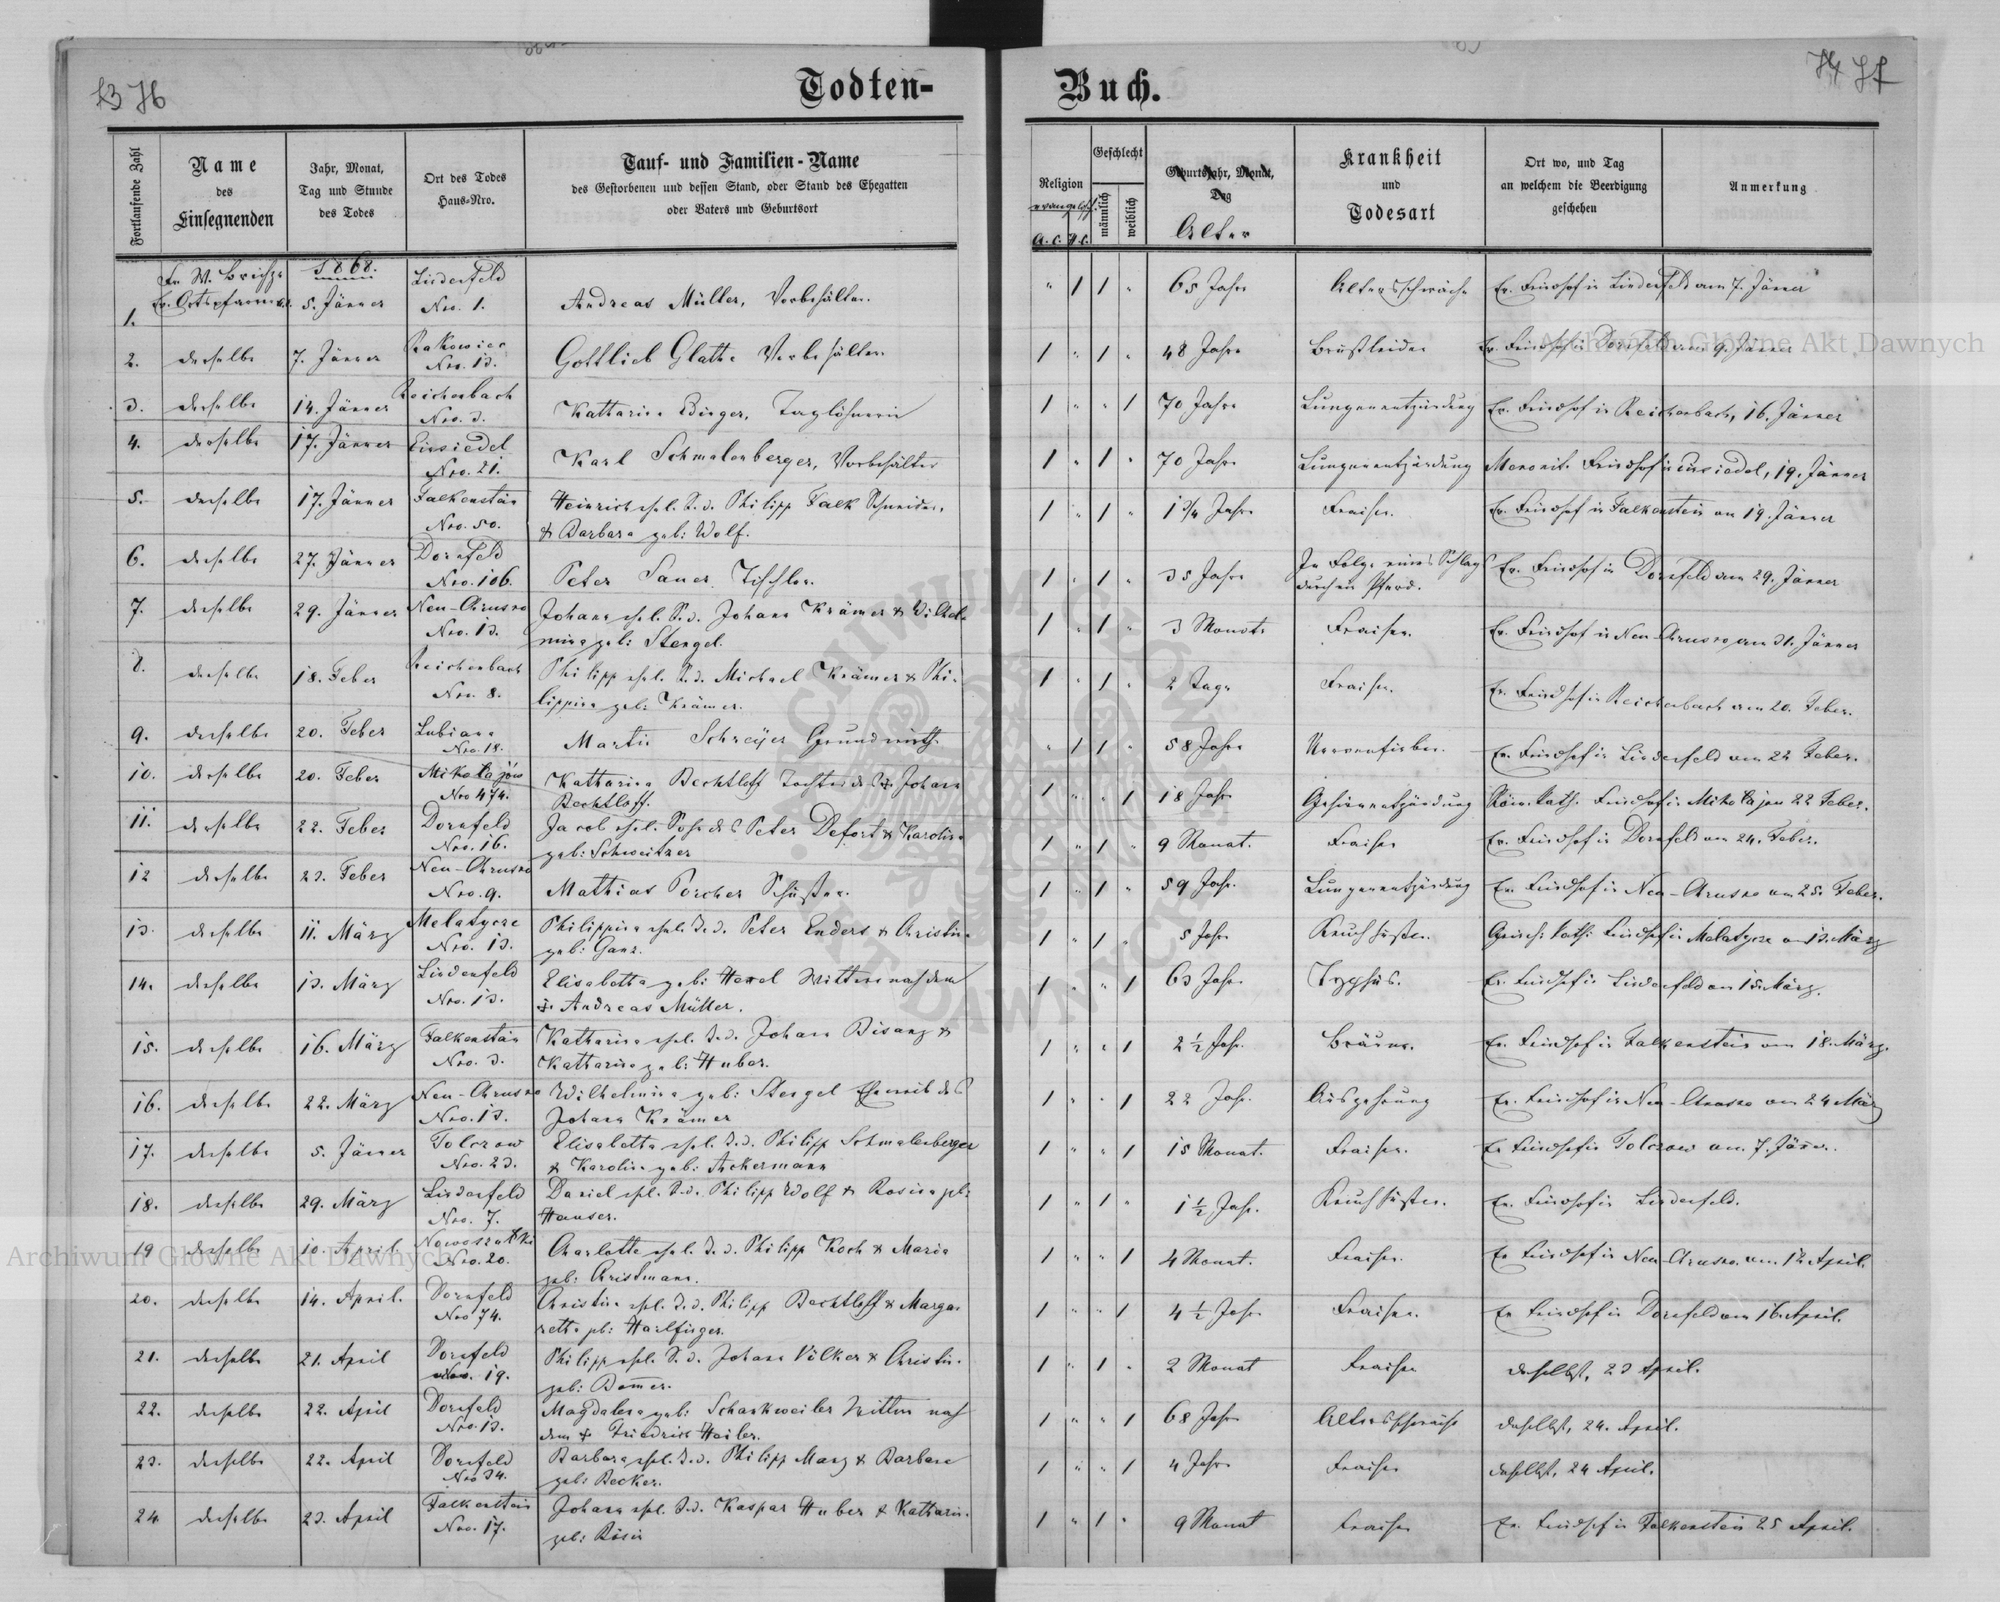 73 76
Todten-
Buch.
74 77
Fortlaufende Zahl
Name
des
Einsegnenden
Jahr, Monat,
Tag und Stunde
des Todes
Ort des Todes
Haus-Nro.
Tauf- und Familien-Name
des Gestorbenen und dessen Stand, oder Stand des Ehegatten
oder Vaters und Geburtsort
Religion
evangelisch.
A.C. H.C.
Geschlecht
männlich
weiblich
Geburtsjahr, Monat,
Tag
Alter
Krankheit
und
Todesart
Ort wo, und Tag
an welchem die Beerdigung
geschehen
Anmerkung
1868.
1. Ev. Ortspfarrer 5. Jänner Lindenfeld Nro. 1. Andreas Müller, Vorbehälter. " 1 1 " 65 Jahre Altersschwäche Ev. Friedhof in Lindenfeld am 7. Jänner
2. derselbe 7. Jänner Rakowiec Nro. 13. Gottlieb Glatte Vorbehälter. 1 " 1 " 48 Jahre Brustleiden Ev. Friedhof in Dornfeld am 9. Jänner
3. derselbe 14. Jänner Reichenbach Nro. 3. Katharina Binger, Taglöhnerin 1 " " 1 70 Jahre Lungenentzündung Ev. Friedhof in Reichenbach, 16. Jänner
4. derselbe 17. Jänner Einsiedel Nro. 21. Karl Schmalenberger, Vorbehälter 1 " 1 " 70 Jahre Lungenentzündung Menonit. Friedhof in Einsiedel, 19. Jänner
5. derselbe 17. Jänner Falkenstein Nro. 50. Heinrich ehl. S. d. Philipp Falk Schneider,
& Barbara geb: Wolf. 1 " 1 " 1 3/4 Jahre Fraisen. Ev. Friedhof in Falkenstein am 19. Jänner
6. derselbe 27. Jänner Dornfeld Nro. 106. Peter Sauer, Tischler. 1 " 1 " 35 Jahre In Folge eines Schlags
durch ein Pferd. Ev. Friedhof in Dornfeld am 29. Jänner
7. derselbe 29. Jänner Neu-Chrusno Nro. 13. Johann ehl. S. d. Johann Krämer & Wilhel-
mina geb: Stengel. 1 " 1 " 3 Monate Fraisen. Ev. Friedhof in Neu-Chrusno am 31. Jänner
8. derselbe 18. Feber Reichenbach Nro. 8. Philipp ehl. S. d. Michael Krämer & Phi-
lippina geb: Krämer. 1 " 1 " 2 Tage Fraisen. Ev. Friedhof in Reichenbach am 20. Feber.
9. derselbe 20. Feber Lubiana Nro. 18. Martin Schreyer Grundwirth. " 1 1 " 58 Jahre Nervenfieber. Ev. Friedhof in Lindenfeld am 22 Feber.
10. derselbe 20. Feber Mikołajów Nro 474. Katharina Bechtloff Tochter des † Johann
Bechtloff. 1 " " 1 18 Jahre Gehirnentzündung Röm. Kath. Friedhof in Mikołajow 22 Feber.
11. derselbe 22. Feber Dornfeld Nro. 16. Jacob ehl. Sohn des Peter Defort & Karolina
geb: Schweitzer 1 " 1 " 9 Monat. Fraisen Ev. Friedhof in Dornfeld am 24. Feber.
12 derselbe 23. Feber Neu-Chrusno Nro. 9. Mathias Porcher Schuster. 1 " 1 " 59 Jahr. Lungenentzündung Ev. Friedhof in Neu-Chrusno am 25. Feber.
13. derselbe 11. März Melatycze Nro. 13. Philippina ehl. T. d. Peter Enders & Christina
geb: Ganz. 1 " 1 " 5 Jahr. Keuchhusten. Griech: kath: Friedhof in Melatycze am 13. März
14. derselbe 13. März Lindenfeld Nro. 13. Elisabetha geb: Hexel Wittwe nach dem
† Andreas Müller. 1 " " 1 63 Jahre Typhus. Ev. Friedhof in Lindenfeld am 15. März.
15. derselbe 16. März Falkenstein Nro. 3. Katharina ehl. T. d. Johann Bisanz &
Katharina geb: Huber. 1 " " 1 2 1/2 Jahr. Bräune. Ev. Friedhof in Falkenstein am 18. März.
16. derselbe 22. März Neu-Chrusno Nro. 13. Wilhelmina geb: Stengel Eheweib des
Johann Krämer 1 " " 1 22 Jahr. Auszehrung Ev. Friedhof in Neu-Chrusno am 24 März
17. derselbe 5. Jänner Tolczow Nro. 23. Elisabetha ehl. T. d. Philipp Schmalenberger
& Karolina geb: Ackermann 1 " " 1 15 Monat. Fraisen. Ev Friedhof in Tolczow am 7. Jänner.
18. derselbe 29. März Lindenfeld Nro. 7. Daniel ehl. S. d. Philipp Wolf & Rosina geb:
Hauser. 1 " 1 " 1 1/2 Jahr. Keuchhusten. Ev. Friedhof in Lindenfeld.
19 derselbe 10. April Nro. 20. Charlotte ehl. T. d. Philipp Koch & Maria
geb: Christmann. 1 " " 1 4 Monat. Fraisen. Ev Friedhof in Neu-Chrusno am 12 April.
20. derselbe 14. April. Dornfeld Nro 74. Christina ehl. T. d. Philipp Bechtloff & Marga-
retha geb: Harlfinger. 1 " " 1 4 1/2 Jahr Fraisen. Ev Friedhof in Dornfeld am 16. April.
21. derselbe 21. April Dornfeld Nro. 19. Philipp ehl. S. d. Johann Völker & Christin.
geb: Bom̄er. 1 " 1 " 2 Monat Fraisen daselbst, 23 April.
22. derselbe 22. April Dornfeld Nro. 13. Magdalena geb: Schankweiler Wittwe nach
dem † Friedrich Heiler. 1 " " 1 68 Jahre Altersschwäche daselbst, 24. April.
23. derselbe 22. April Dornfeld Nro 34. Barbara ehl. T. d. Philipp Manz & Barbara
geb: Becker. 1 " " 1 4 Jahre Fraisen daselbst, 24 April.
24 derselbe 23. April Falkenstein Nro. 17. Johann ehl. S. d. Kaspar Huber & Katharin.
geb: Rösin 1 " 1 " 9 Monat Fraisen Ev. Friedhof in Falkenstein 25 April.
ARCHIWUM GŁÓWNE AKT DAWNYCH
Archiwum Główne Akt Dawnych
Archiwum Główne Akt Dawnych